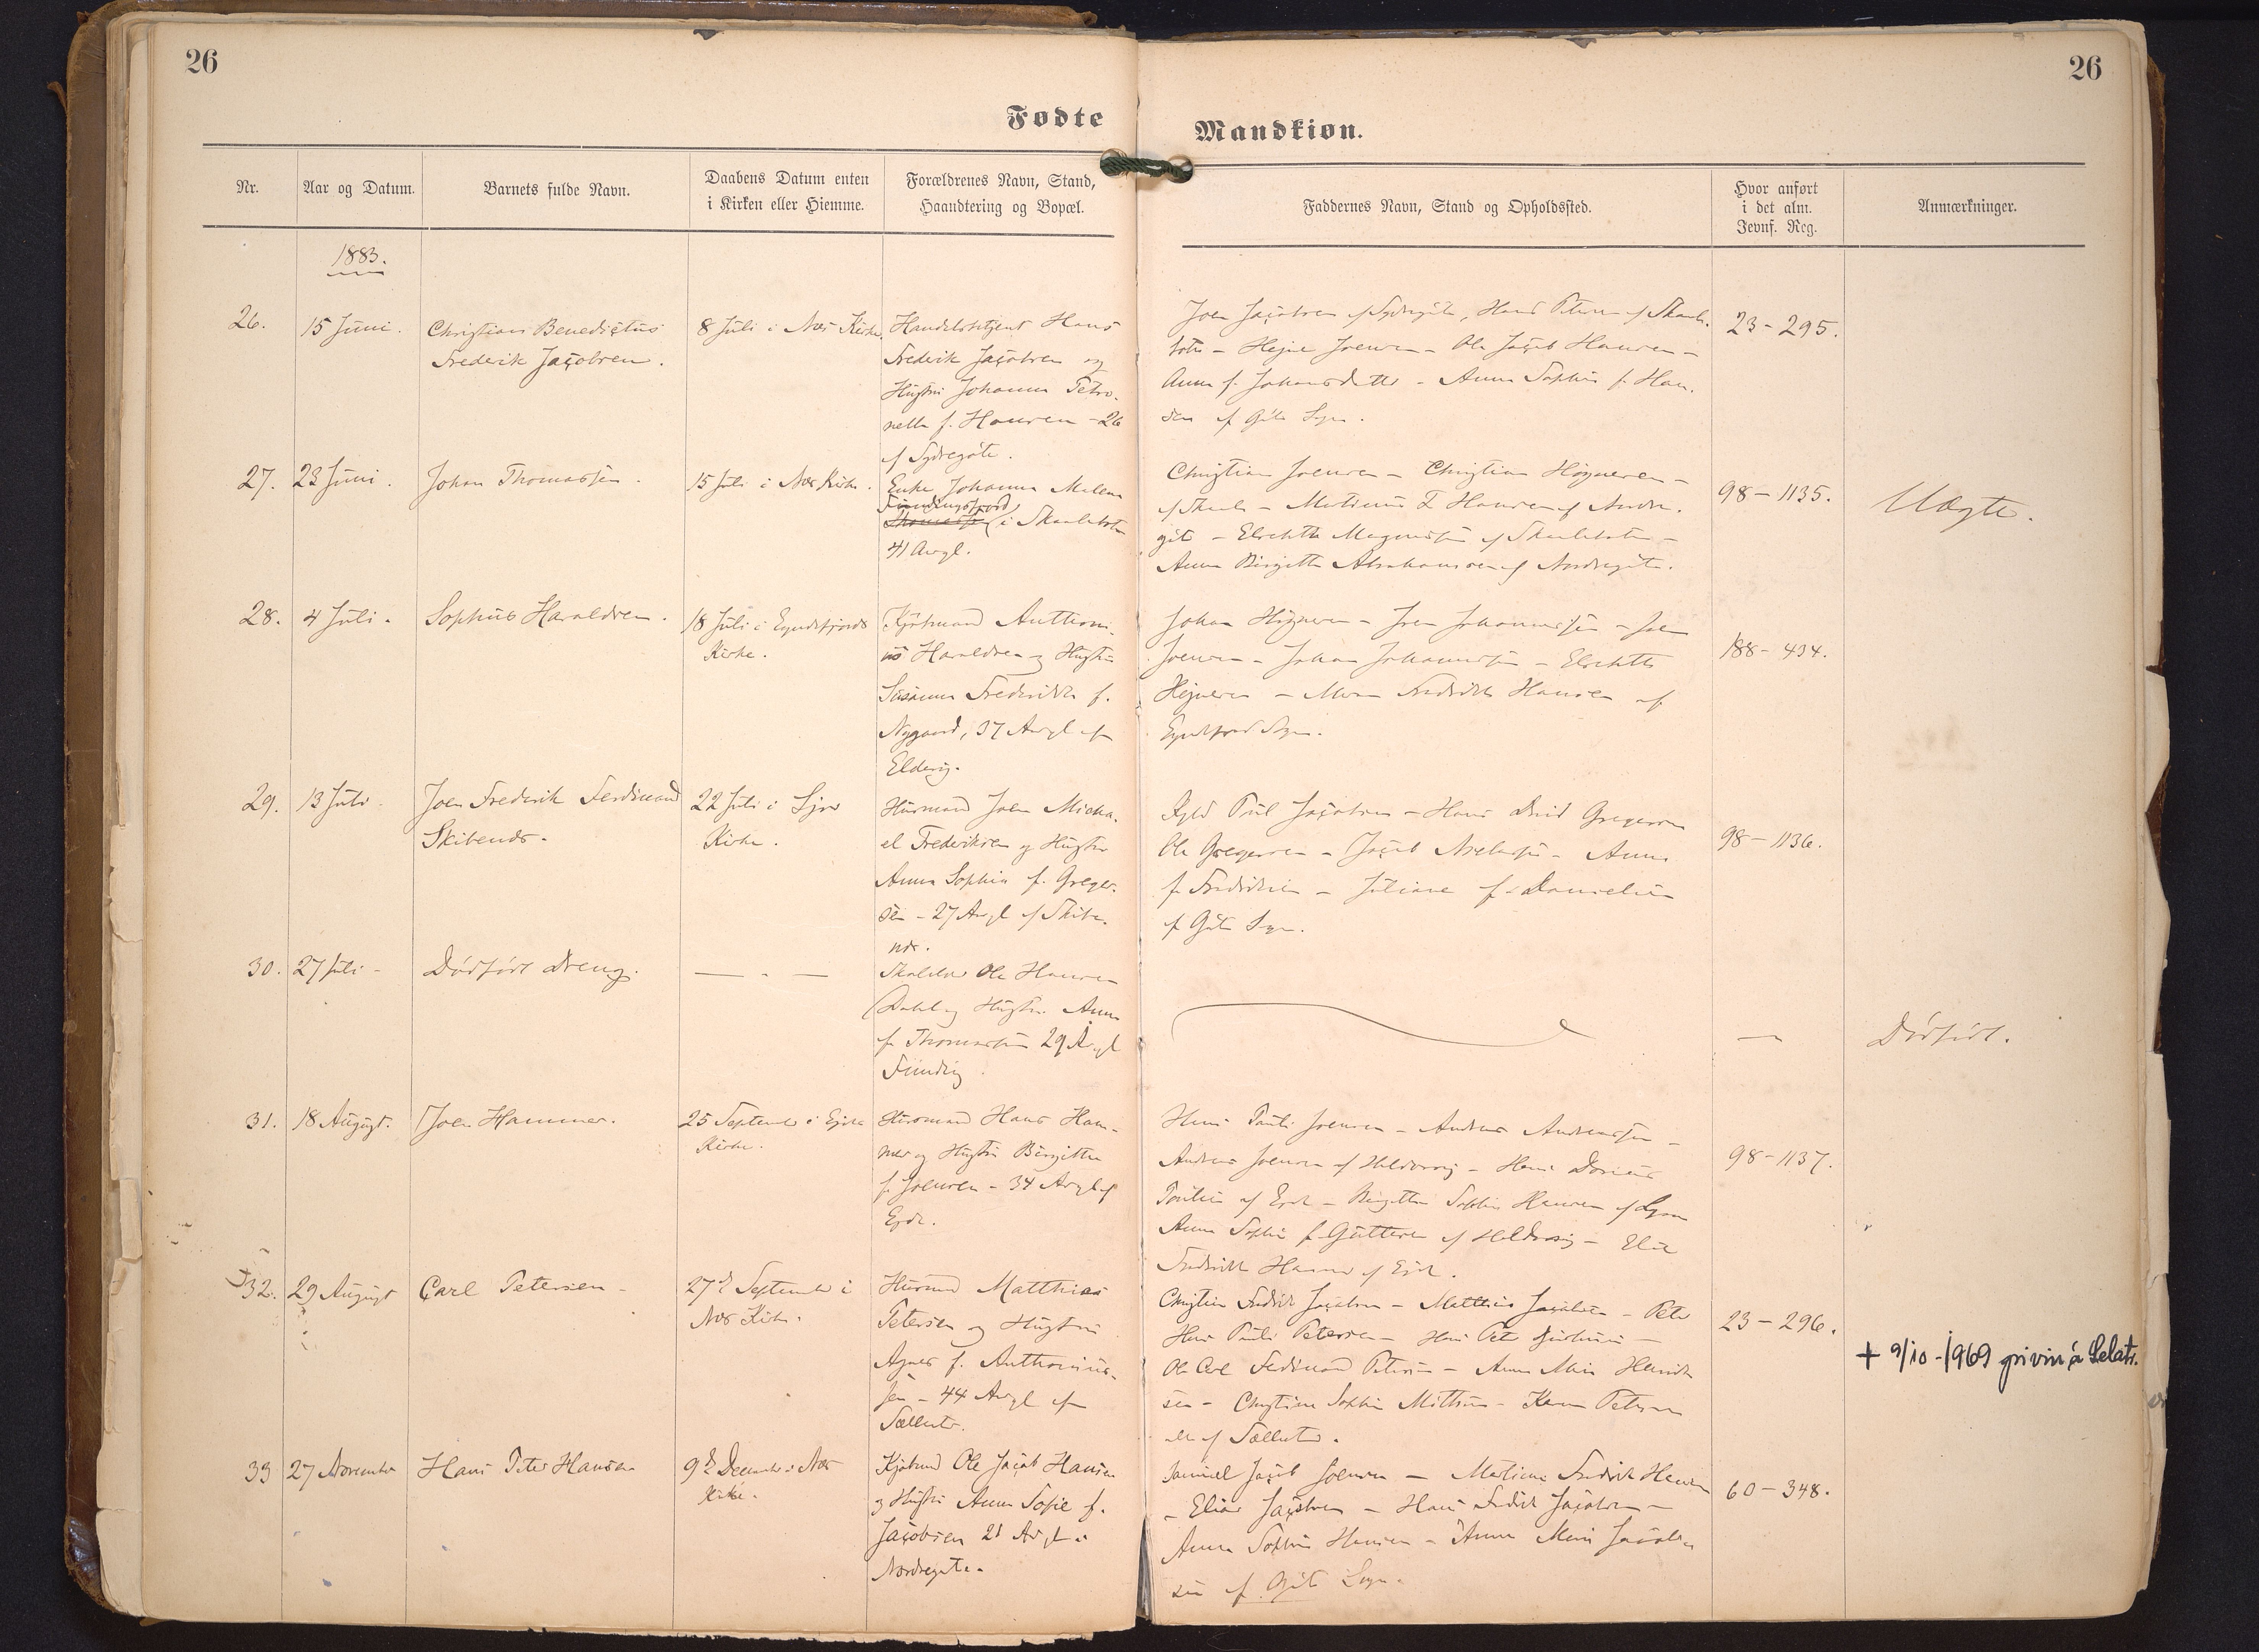 26
26
Fødte
Mandkiøn.
Nr.
Aar og Datum.
Barnets fulde Navn.
Daabens Datum enten
i Kirken eller Hiemme.
Forældrenes Navn, Stand,
Haandtering og Bopæl.
Faddernes Navn, Stand og Opholdssted.
Hvor anført
i det alm.
Jevnf. Reg.
Anmærkninger.
1883.
26.
15 Juni.
Christian Benedictus
Frederik Jacobsen.
8 Juli i Næs Kirke
Handelsbetjent Hans
Frederik Jacobsen og
Hustru Johanne Petro-
nelle f. Hansen - 26
af Sydregøte.
Joen Jacobsen af Sydregøte, Hans Petersen af Skaale-
Joensen - Ole Jacob Hansen -
Anna f. Johansdatter - Anna Sophie f. Han-
sen af Gøte Sogn.
23 - 295.
27.
23 Juni.
Johan Thomassen.
15 Juli i Næs Kirke.
Enke Johanne Malene
Fundingsfjord
i Skaalebotn
41 Aargl.
Christian Joensen - Christian Højgaardsen -
af Skaale - F Hansen af Nordre-
gøte - Elsebeth Magnussen af Skaalebotn -
Anna Birgitte Abrahamsen af Nordregøte.
98 - 1135.
Uægte.
28.
4 Juli.
Sophus Haraldsen.
18 Juli i Ejndefjords
Kirke.
Anthoni-
us Haraldsen og Hustru
Susanne Frederikke f.
Nygaard, 37 Aargl af
Elduvig.
Johan - Johannessen - Joen
Joensen - Johan Johannessen - Elsebeth
- Frederikke Hansen af
Sogn.
188 - 434.
29.
13 Juli.
Joen Frederik Ferdinand
Skibenæs.
22 Juli i Ljov
Kirke.
Husmand Joen Micha-
el Frederiksen og Hustru
Anna Sophie f. Greger-
sen - 27 Aargl af Skibe-
næs.
Poul Jacobsen - Hans David Gregersen
Ole Gregersen - Jacob - Anna
f. Frederiksen - Juliane f. Danielsen
af Gøte Sogn.
98 - 1136.
30.
27 Juli -
Dødfødt Dreng.
— - —
Ole Hansen
Dahl og Hustru Anna
f. Thomassen 29 Aargl
Funding.
—
Dødfødt.
31.
18 August.
Joen Hammer.
25 September i Ejde
Kirke.
Husmand Hans Ham-
mer og Hustru Birgitte
f. Joensen - 34 Aargl af
Ejde.
Hans Pauli Joensen - Andreas Andreassen -
Andreas Joensen af Haldorsvig - Hans
Poulsen af Ejde - Birgitte Sophie Hansen af
Anna Sophie f. Guttesen af Haldorsvig -
Frederikke Hammer af Ejde.
98 - 1137.
32.
29 August
Carl Petersen -
27de September i
Næs Kirke.
Husmand Matthias
Petersen og Hustru
Agnes f. Anthonius-
sen - 44 Aargl af
Sælletræ.
Christian Fredrik Jacobsen - Matthias Jacobsen - Peter
Hans Pauli Petersen - Hans Peter -
Ole Carl Ferdinand Petersen - Anna Marie Hendrik-
sen - Christine Sophie - Petersen
alle af Sælletræ.
23 - 296.
+ 9/10 - 1969 grivin á Selatr.
33
27 November
Hans Peter Hansen
9de December i Næs
Kirke.
Ole Jacob Hansen
og Hustru Anna Sofie f.
Jacobsen 21 Aargl i
Nordregøte.
Samuel Jacob Joensen - Fredrik Hansen
- Elias Jacobsen - Hans Fredrik Jacobsen -
Anna Sophie Hansen - Anna Marie Jacob-
sen af Gøte Sogn.
60 - 348.